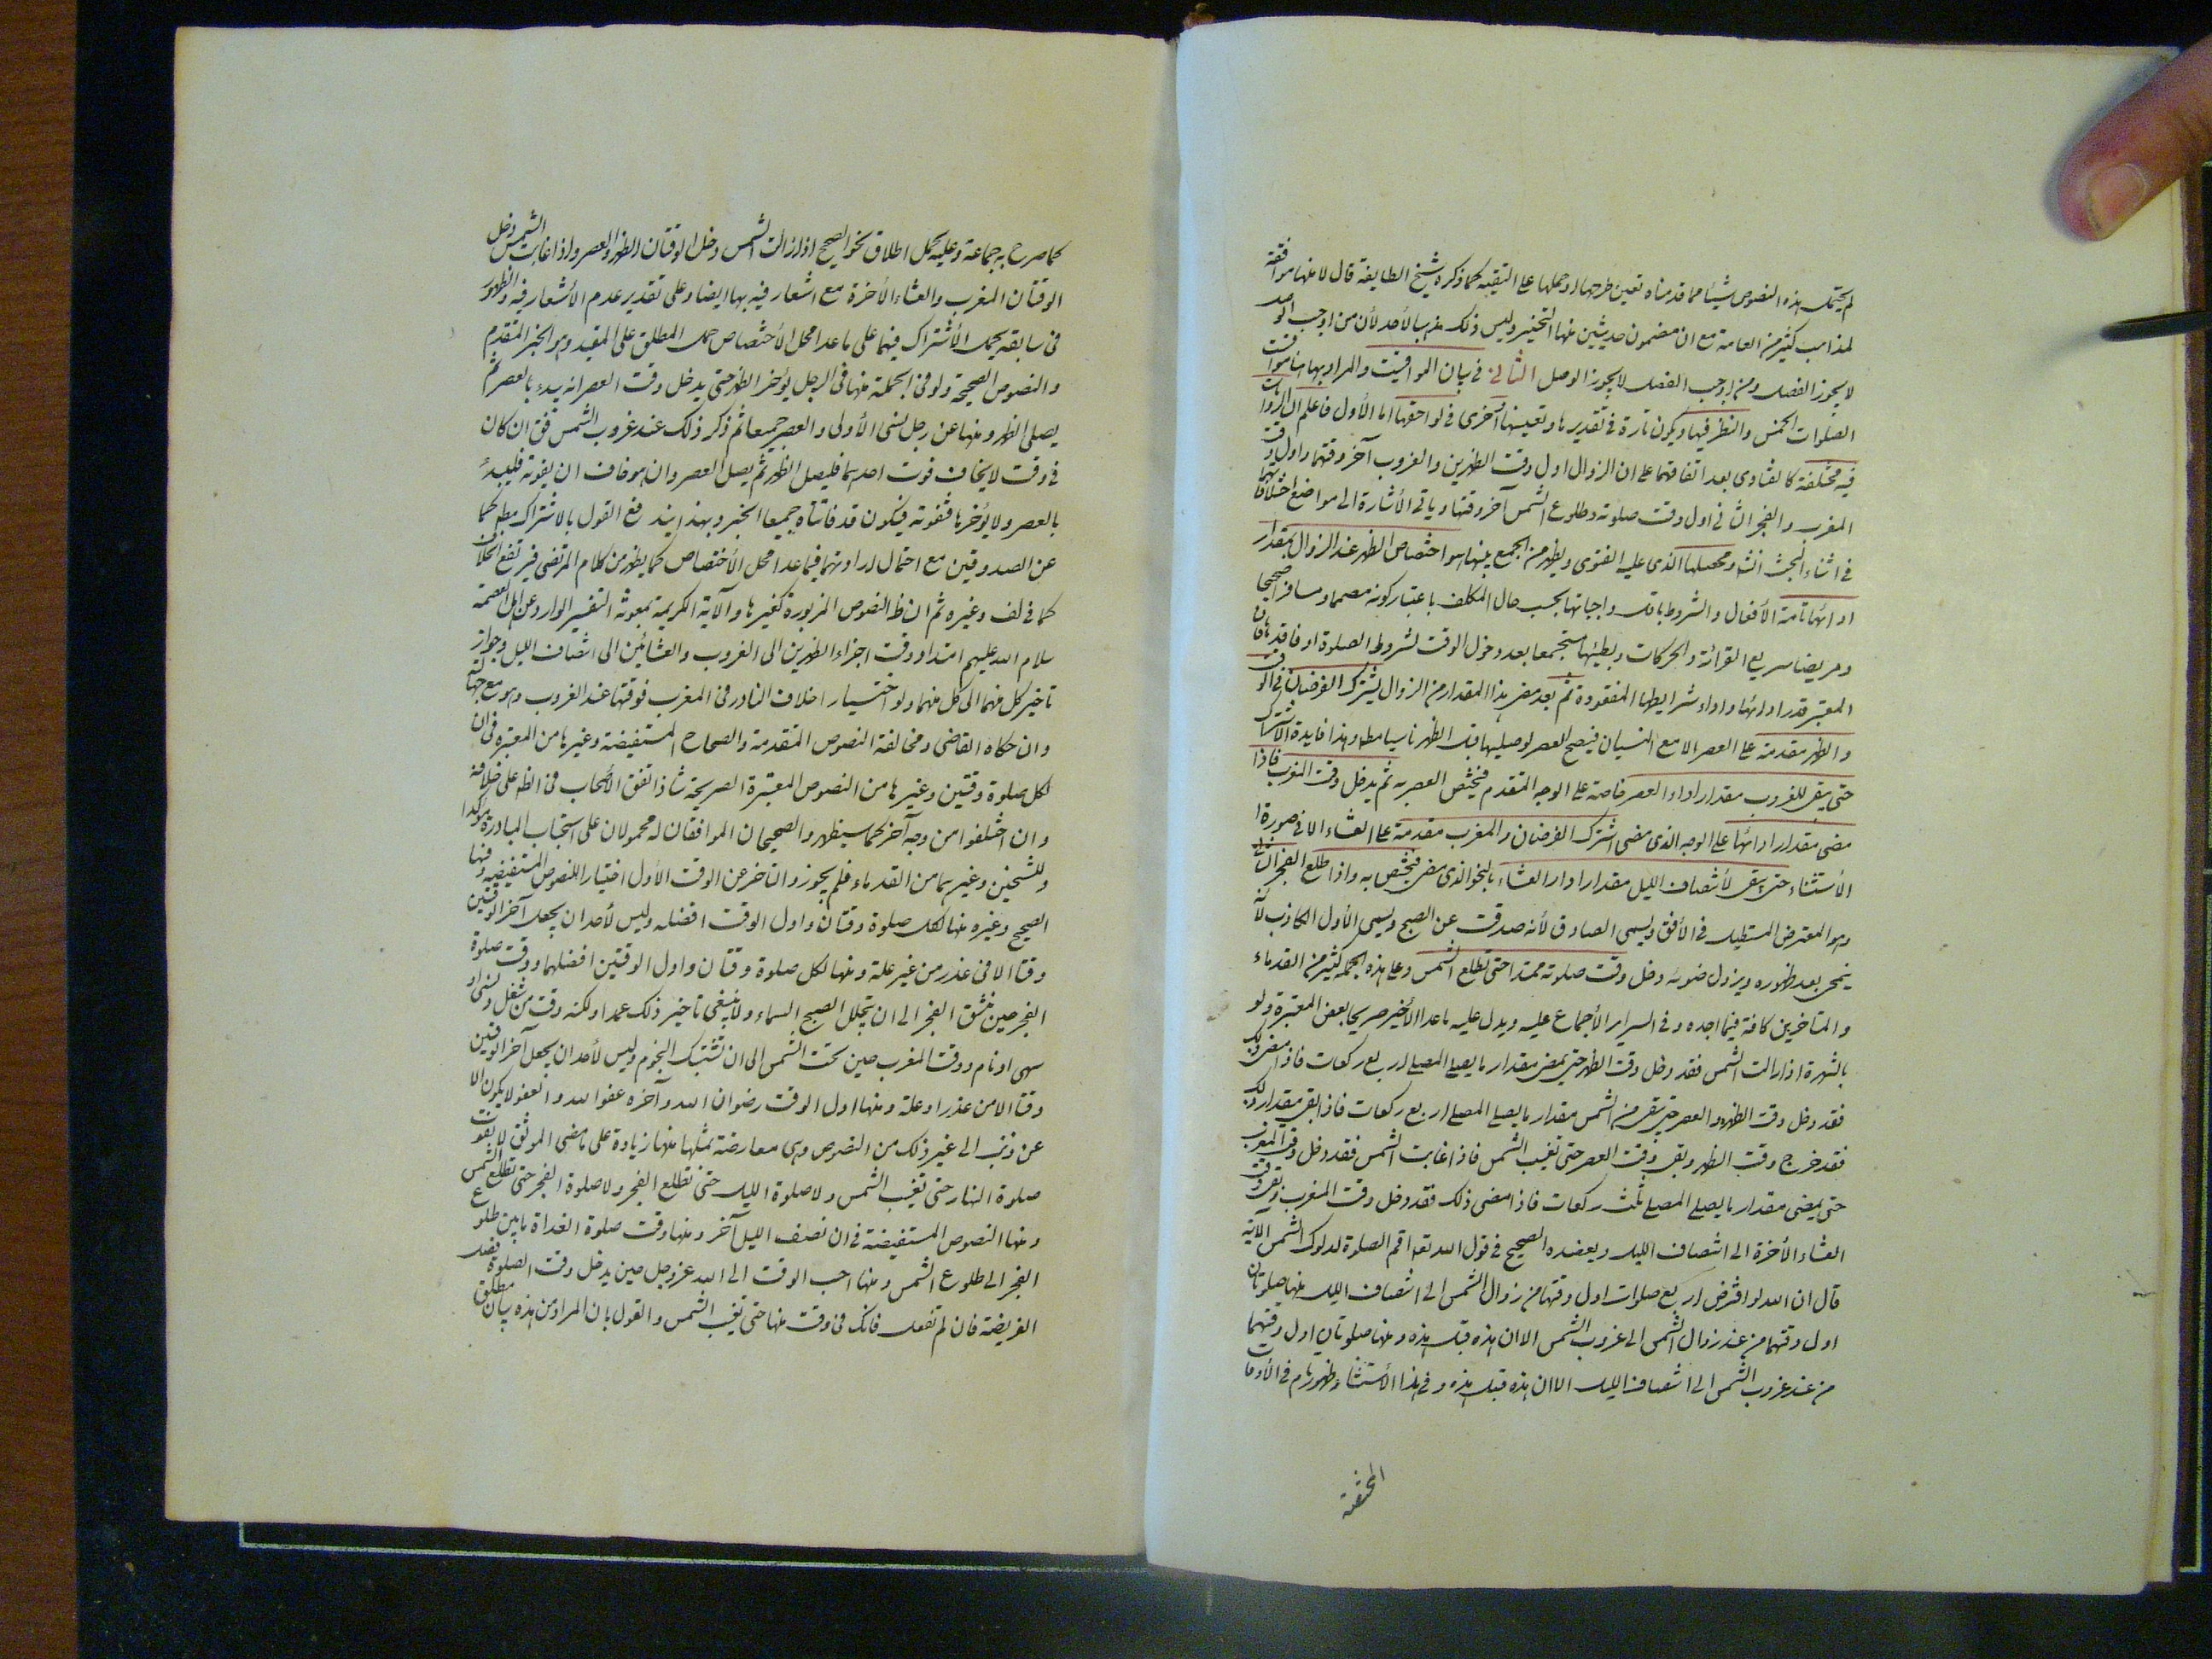 لم يحتمل هذه النصوص شيئا مما قدمناه تعين طرحها او حملها على التقية كما ذكره شيخ الطايفة قال لانها موافقة
لمذاهب كثير من العامة مع ان مضمون حديثين منها التخيير وليس ذلك مذهبا لأحد لأن من اوجب الوصل
لا يجوز الفصل ومن اوجب الفصل لا يجوز الوصل الثاني في بيان المواقيت والمراد بها هنا مواقيت
الصلوات الخمس والنظر فيها يكون تارة في تقديرها وتعيينها واخرى في لواحقها اما الأول فاعلم ان الروايات
فيه مختلفة كالفتاوى بعد اتفاقهما على ان الزوال اول وقت الظهرين والغروب آخر وقتهما واول وقت
المغرب والفجر الثاني اول وقت صلوته وطلوع الشمس آخر وقتها وياتي الأشارة الى مواضع اختلافاتهما
في اثناء البحث انشاء ومحصلها الذي عليه الفتوى ويظهر من الجمع بينها هو اختصاص الظهر عند الزوال بمقدار
ادائها تامة الأفعال والشروط باقل واجباتها بحسب حال المكلف باعتبار كونه مقيما ومسافرا صحيحا
ومريضا سريع القرائة والحركات وبطيئها مستجمعا بعد دخول الوقت لشروط الصلوة او فاقدها فان
المعتبر قدر ادائها واداء شرايطها المفقودة ثم بعد مضي هذا المقدار من الزوال يشترك الفرضان في الوقت
والظهر مقدمة على العصر الا مع النسيان فيصح العصر لو صليها قبل الظهر ناسيا مطلقا وهذا فايدة الأشتراك
حتى يبقى للغروب مقدار اداء العصر خاصة على الوجه المتقدم فيختص العصر به ثم يدخل وقت المغرب فاذا
مضى مقدار ادائها على الوجه الذي مضى اشترك الفرضان والمغرب مقدمة على العشاء الا في صورة
الأستثناء حتى يبقى لأنتصاف الليل مقدار اداء العشاء بالنحو الذي مضى فيختص به واذا طلع الفجر الثاني
وهو المعترض المستطيل في الأفق ويسمى الصادق لأنه صدقك عن الصبح ويسمى الأول الكاذب لأنه
ينمحى بعد ظهوره ويزول ضوئه دخل وقت صلوته ممتدا حتى تطلع الشمس وعلى هذه الجملة كثير من القدماء
والمتاخرين كافة فيما اجده وفي السراير الأجماع عليه ويدل عليه ما عدا الأخير صريحا بعض المعتبرة ولو
بالشهرة اذا زالت الشمس فقد دخل وقت الظهر حتى يمضي مقدار ما يصلي المصلي اربع ركعات فاذا مضى ذلك
فقد دخل وقت الظهر والعصر حتى يبقى من الشمس مقدار ما يصلي المصلي اربع ركعات فاذا بقي مقدار ذلك
فقد خرج وقت الظهر وبقي وقت العصر حتى تغيب الشمس فاذا غابت الشمس فقد دخل وقت المغرب
حتى يمضي مقدار ما يصلي المصلي ثلث ركعات فاذا مضى ذلك فقد دخل وقت المغرب
العشاء الأخرة الى انتصاف الليل ويعضده الصحيح في قول الله تعالى اقم الصلوة لدلوك الشمس الآية
قال ان الله افترض اربع صلوات اول وقتها من زوال الشمس الى انتصاف الليل منها صلوتان
اول وقتهما من عند زوال الشمس الى غروب الشمس الا ان هذه قبل هذه ومنها صلوتان اول وقتهما
من عند غروب الشمس الى انتصاف الليل الا ان هذه قبل هذه وفي هذا الأستثناء ظهور تام في الأوقات
المختصة
كما صرح به جماعة وعليه يحمل اطلاق نحو الصحيح اذا زالت الشمس دخل الوقتان الظهر والعصر واذا غابت الشمس دخل
الوقتان المغرب والعشاء الأخرة مع اشعار فيه بها ايضا وعلى تقدير عدم الأشعار فيه والظهور
في سابقه يحمل الأشتراك فيهما على ما عدا محل الأختصاص حمل المطلق على المقيد وهو الخبر المتقدم
والنصوص الصحيحة ولو في الجملة منها في الرجل يؤخر الظهر حتى يدخل وقت العصر انه يبدء بالعصر ثم
يصلي الظهر ومنها عن رجل نسي الأولى والعصر جميعا ثم ذكر ذلك عند غروب الشمس فق ان كان
في وقت لا يخاف فوت احديهما فليصل الظهر ثم يصل العصر وان هو خاف ان يفوته فليبدء
بالعصر ولا يؤخرها فتفوته فيكون قد فاتتاه جميعا الخبر وبهذا يندفع القول بالاشتراك مطلقا كما
عن الصدوقين مع احتمال ارادتهما فيما عدا محل الأختصاص كما يظهر من كلام المرتضى فيرتفع الخلاف
كما في لف وغيره ثم ان ظ النصوص المزبورة كغيرها والآية الكريمة بمعونة التفسير الوارد عن اهل العصمة
سلام الله عليهم امتداد وقت اجزاء الظهرين الى الغروب والعشائين الى انتصاف الليل وجواز
تاخير كل منهما الى كل منهما ولو اختيارا خلاف النادر في المغرب فوقتها عند الغروب وهو مع جهالته
وان حكاه القاضي ومخالفة النصوص المتقدمة والصحاح المستفيضة وغيرها من المعتبرة في ان
لكل صلوة وقتين وغيرها من النصوص المعتبرة الصريحة شاذ اتفق الأصحاب في الظ على خلافه
وان اختلفوا من وجه آخر كما سيظهر والصحيحان الموافقان له محمولان على استحباب المبادرة مؤكدا
وللشيخين وغيرهما من القدماء فلم يجوزوا التاخر عن الوقت الأول اختيارا للنصوص المستفيضة منها
الصحيح وغيره منها لكل صلوة وقتان واول الوقت افضله وليس لأحد ان يجعل آخر الوقتين
وقتا الا في عذر من غير علة ومنها لكل صلوة وقتان واول الوقتين افضلهما ووقت صلوة
الفجر حين ينشق الفجر الى ان يتجلل الصبح السماء ولا ينبغي تاخير ذلك عمدا ولكنه وقت من شغل او نسي او
سهى او نام ووقت المغرب حين تحت الشمس الى ان تشتبك النجوم وليس لأحد ان يجعل آخر الوقتين
وقتا الا من عذر او علة ومنها اول الوقت رضوان الله وآخره عفو الله والعفو لا يكون الا
عن ذنب الى غير ذلك من النصوص وهي معارضة بمثلها منها زيادة على ما مضى الموثق لا تفوت
صلوة النهار حتى تغيب الشمس ولا صلوة الليل حتى تطلع الفجر ولا صلوة الفجر حتى تطلع الشمس
ومنها النصوص المستفيضة في ان نصف الليل آخر ومنها وقت صلوة الغداة ما بين طلوع
الفجر الى طلوع الشمس ومنها احب الوقت الى الله عز وجل حين يدخل وقت الصلوة فصل
الفريضة فان لم تفعل فانك في وقت منها حتى تغيب الشمس والقول بان المراد من هذه بيان مطلق